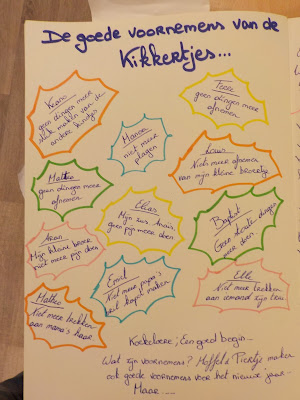 De goede voornemens van de
Kikkertjes...
Keano
geen dingen meer
stuk maken van de
andere kindjes
Terre
geen dingen meer
afnemen
Manon
niet meer
plagen
Louis
Niets meer afnemen
van mijn kleine broertje
Mathéo
geen dingen meer
afnemen
Elias
Mijn zus Anaïs
geen pijn meer doen
Geen stoute dingen
meer doen.
Aron
Mijn kleine broer
niet meer pijn doen
Emiel
Niet meer papa's
bril kapot maken
Elle
Niet meer trekken
aan iemand zijn trui.
Matteo
Niet meer trekken
aan mama's haar.
Koekeloere; Een goed begin...
Wat zijn voornemens? Moffel & Piertje maken
ook goede voornemens voor het nieuwe jaar.
Maar......